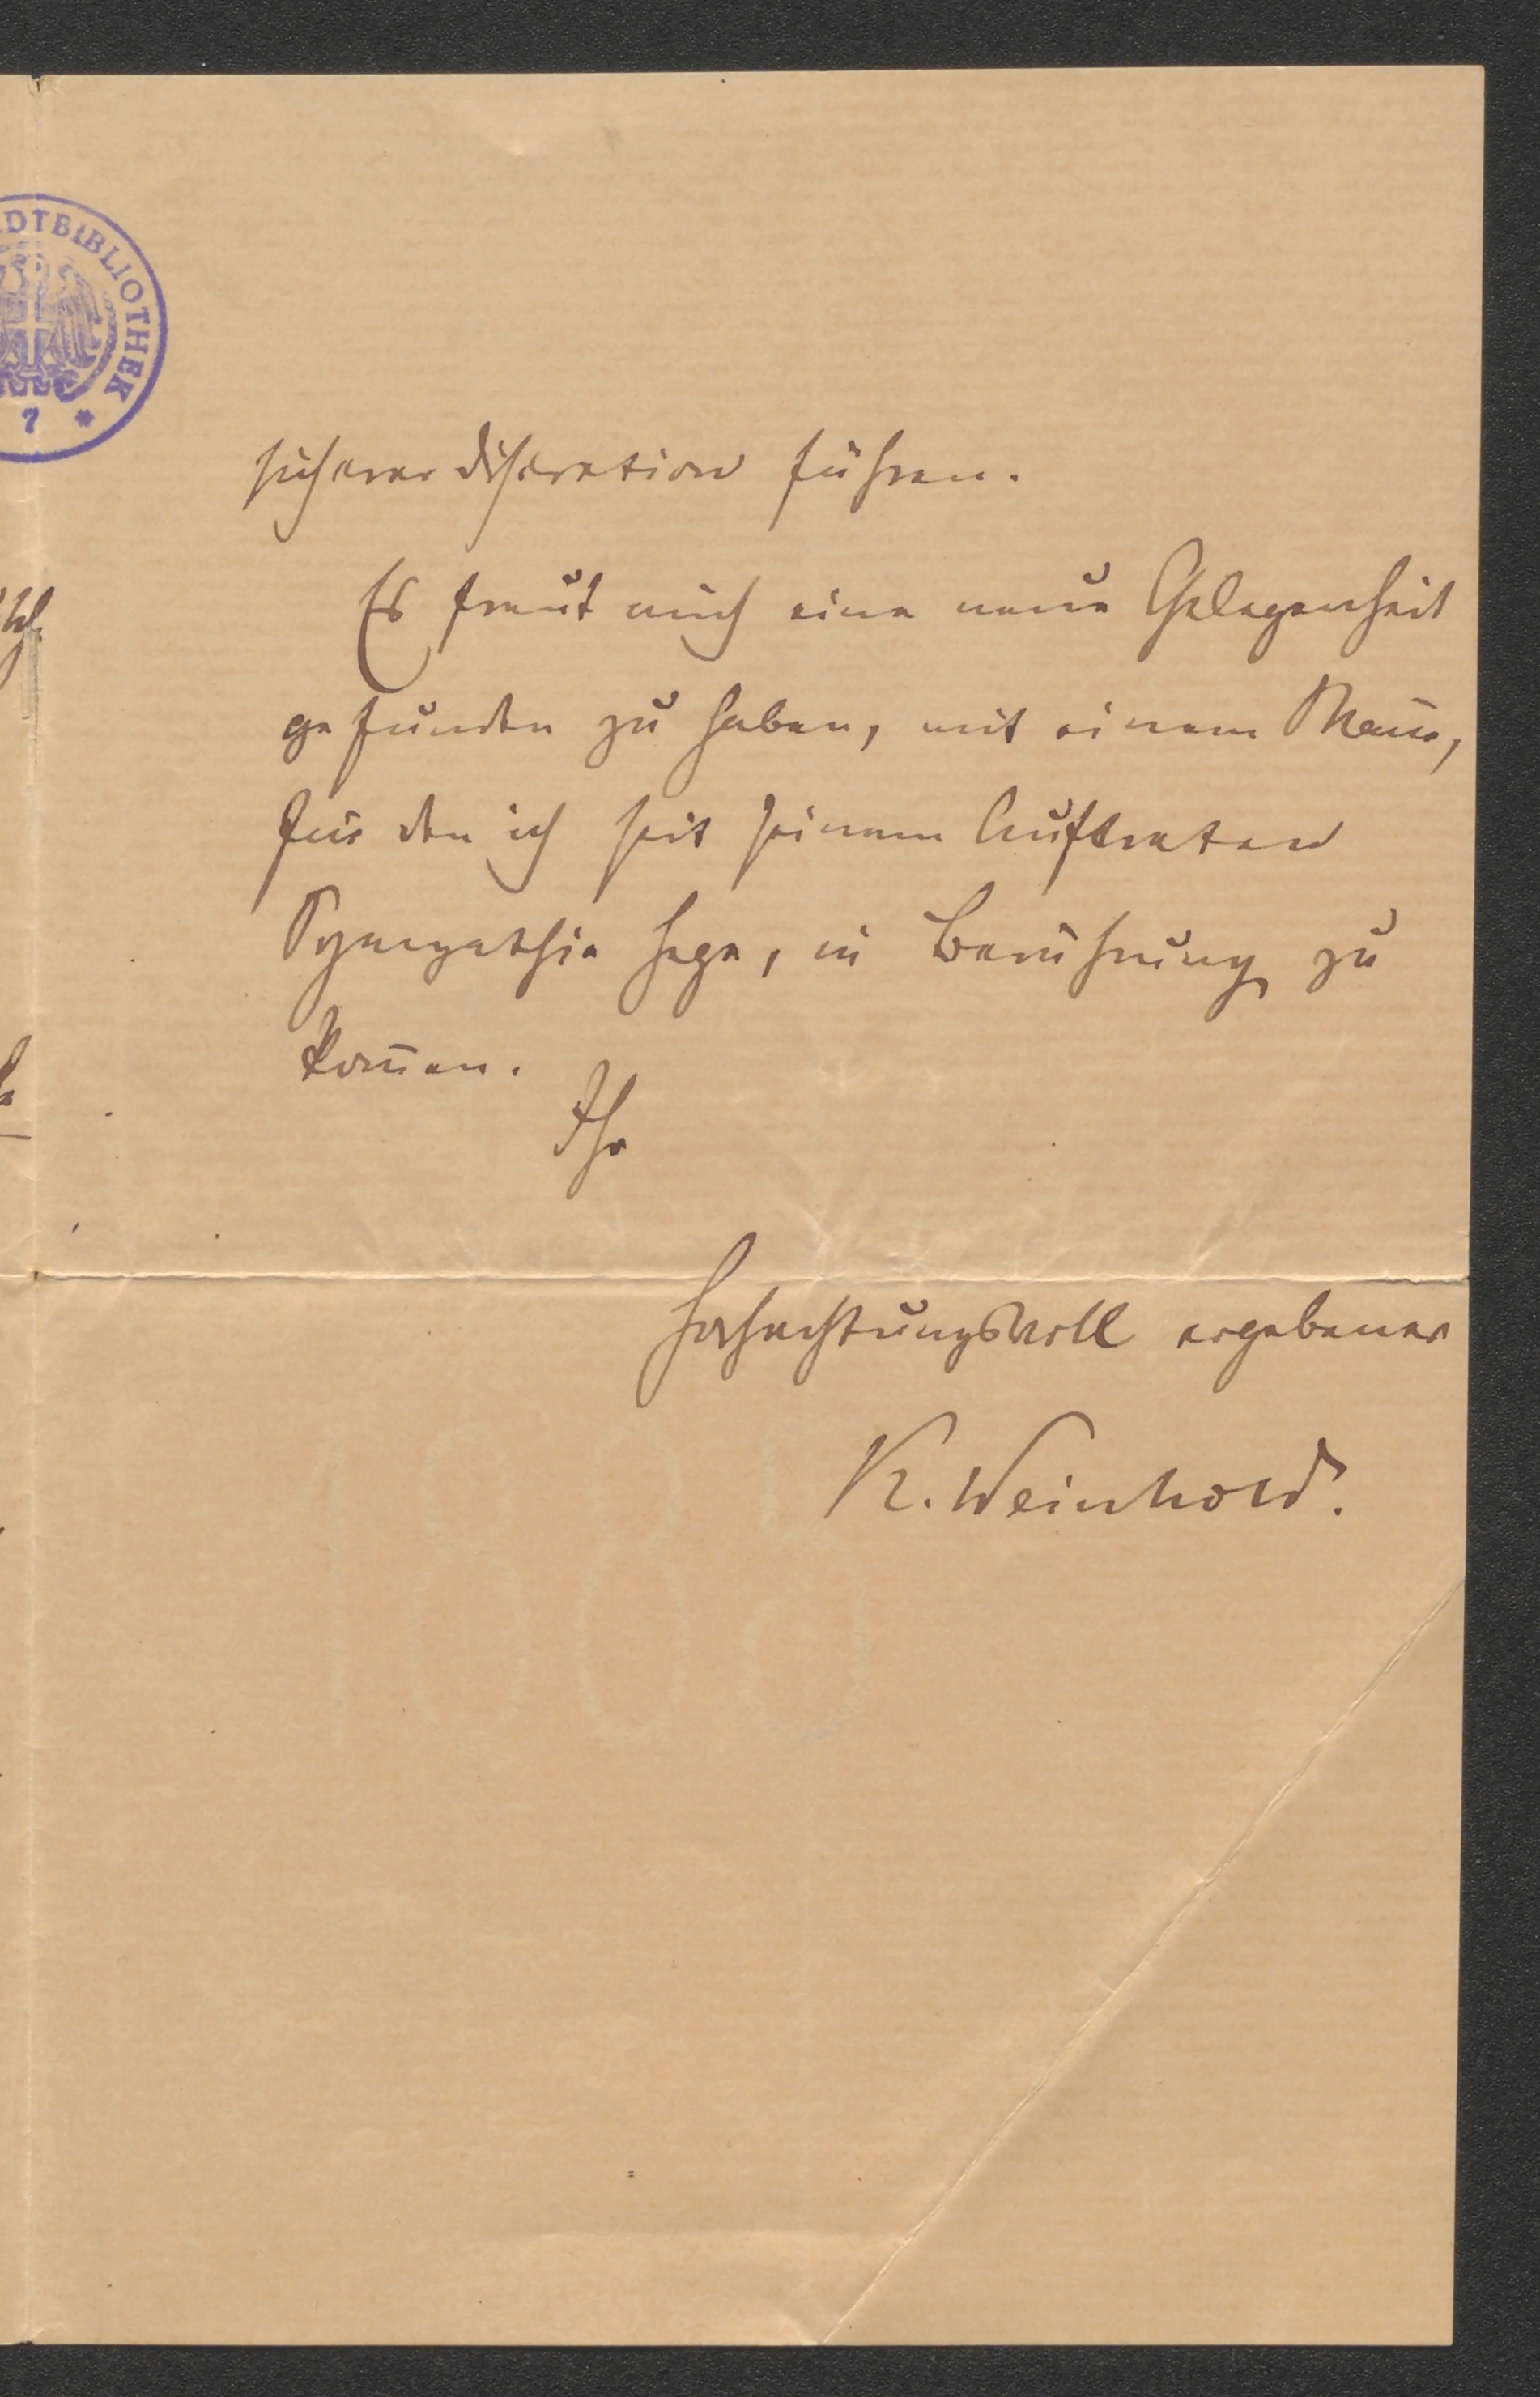 DTBIBLIOTHEK
7 *
sicherer Discretion führen.
Es freut mich eine neue Gelegenheit
gefunden zu haben, mit einem Man̄,
für den ich seit seinem Auftreten
Sympathie hege, in Berührung zu
kom̄en.
Ihr
hochachtungsvoll ergebener
K. Weinhold.